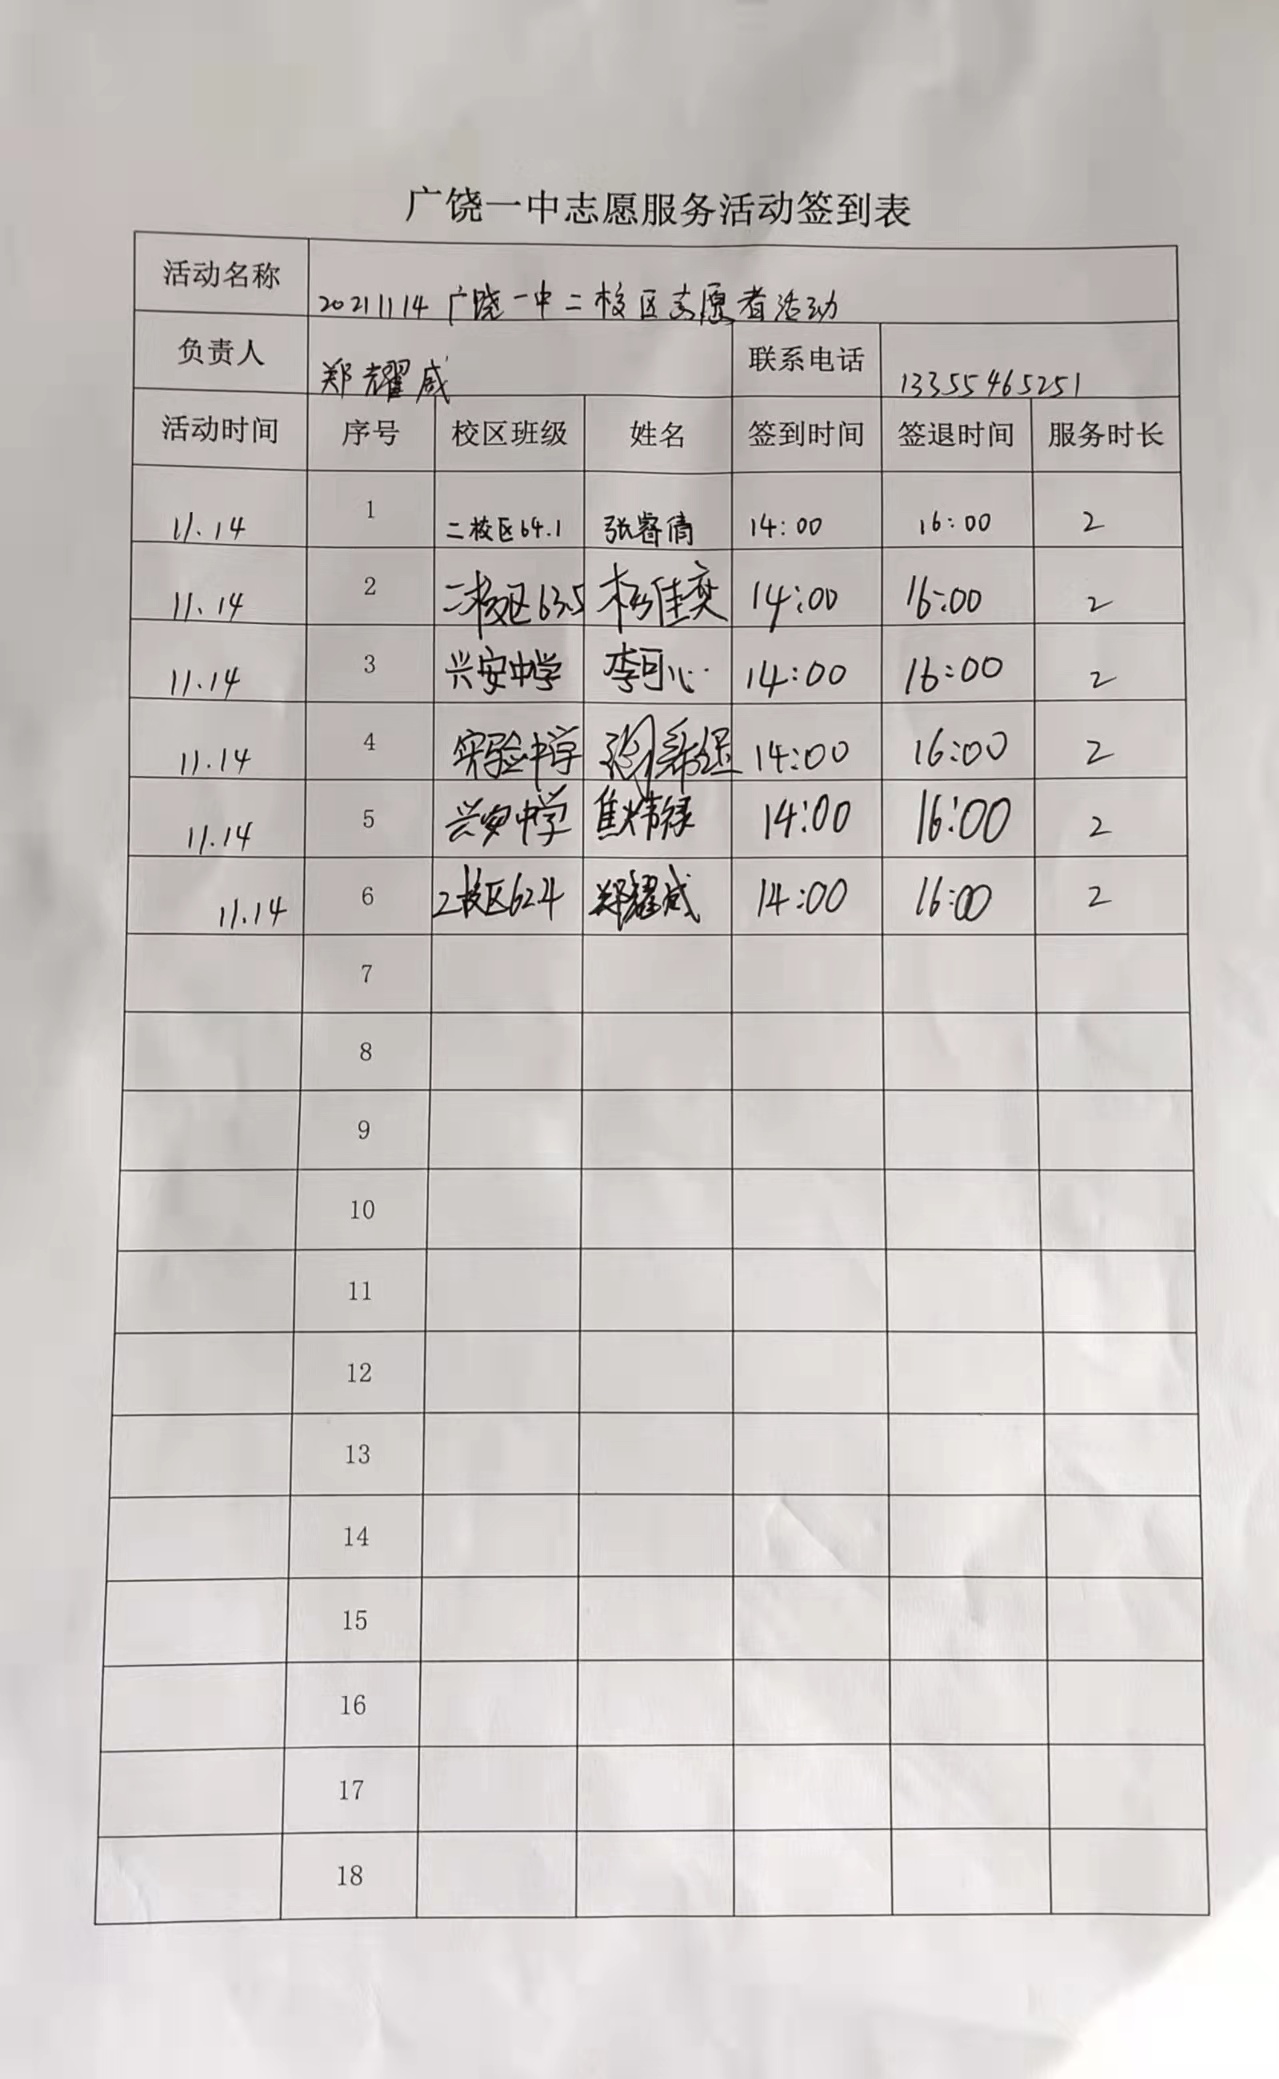 广饶一中志愿服务活动签到表
活动名称 20211114 广饶一中二校区志愿者活动
负责人 郑耀威 联系电话 13355465251
活动时间 序号 校区班级 姓名 签到时间 签退时间 服务时长
11.14 1 二校区64.1 张睿倩 14:00 16:00 2
11.14 2 二校区63.5 佳奕 14:00 16:00 2
11.14 3 兴安中学 李可心 14:00 16:00 2
11.14 4 实验中学 14:00 16:00 2
11.14 5 兴安中学 焦炜禄 14:00 16:00 2
11.14 6 2校区624 郑耀威 14:00 16:00 2
7
8
9
10
11
12
13
14
15
16
17
18